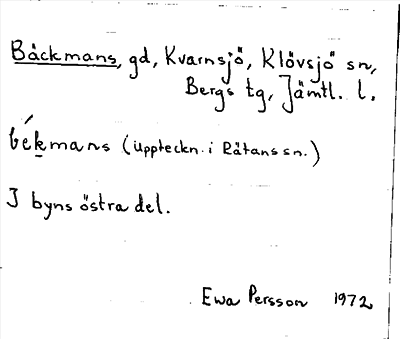 Bäckmans, gd, Kvarnsjö, Klövsjö sn,
Bergs tg, Jämtl. l.
békmans (uppteckn. i Rätans sn.)
I byns östra del.
Ewa Persson 1972